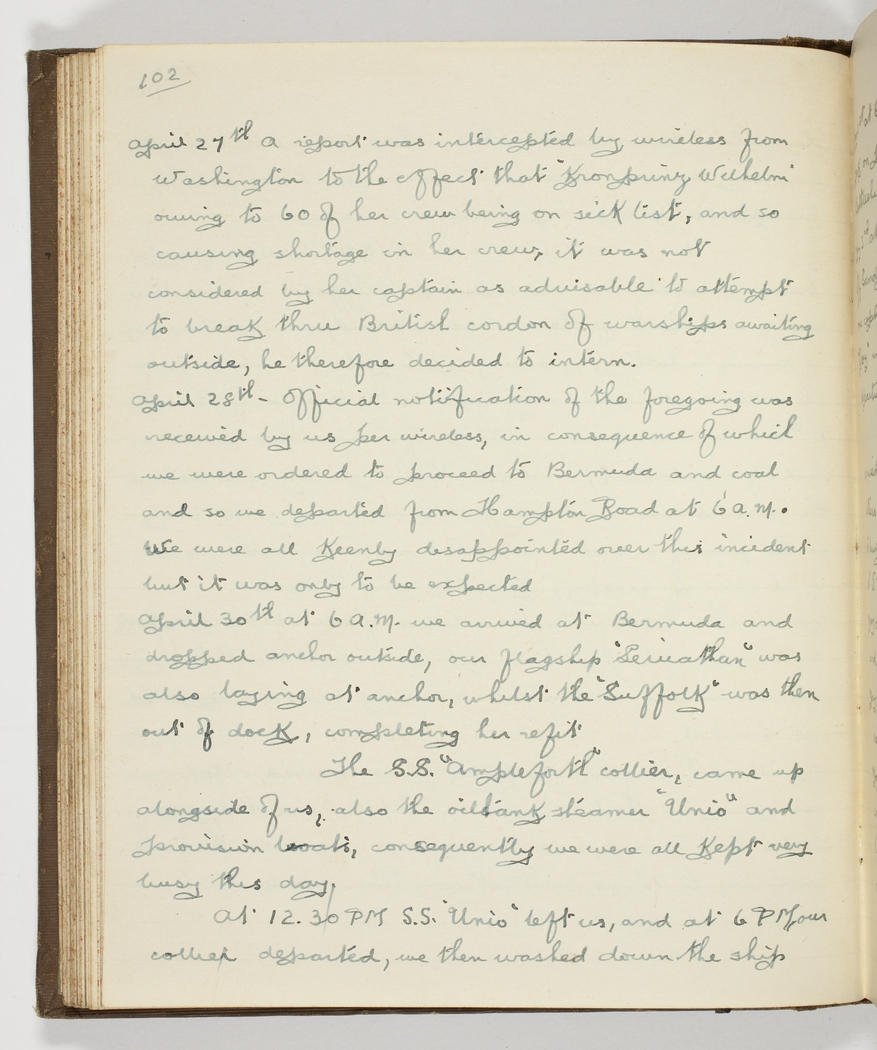 102
April 27th A report was intercepted by wireless from
Washington to the effect that "Kronprinz Wilhelm"
owing to 60 of her crew being on sick list, and so
causing shortage in her crew, it was not
considered by her captain as advisable to attempt
to break thru British cordon of warships awaiting
outside, he therefore decided to intern.
April 28th - Official notification of the foregoing was
received by us per wireless, in consequence of which
we were ordered to proceed to Bermuda and coal
and so we departed from Hampton Road at 6 A.M.
We were all Keenly disappointed over this incident
but it was only to be expected
April 30th at 6 A.M. we arrived at Bermuda and
dropped anchor outside, our flagship "Leviathan" was
also laying at anchor, whilst the "Suffolk" was then
out of dock, completing her refit
The S.S. "Ampleforth" collier, came up
alongside of us, also the oiltank steamer "Unio" and
provision boats, consequently we were all Kept very
busy this day.
At 12.30 PM S.S. "Unio" left us, and at 6 PM our
collier departed, we then washed down the ship